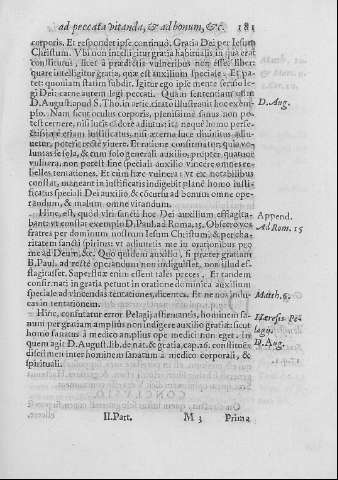 ad peccata vitanda, & ad bonum, &c. 181
corporis. Et respondet ipse continuò. Gratia Dei per Iesum
Christum. Vbi non intelligitur gratia habitualis in qua erat
constitutus, licet à prædictis vulneribus non esset liber:
quare intelligitur gratia, quæ est auxilium speciale. Et pa-
tet: quoniam statim subdit. Igitur ego ipse mente seruio le-
gi Dei: carne autem legi peccati. Quam sententiam etiam
D. August. apud S. Tho. in artic. citato illustrauit hoc exem-
plo. Nam sicut oculus corporis, plenissimè sanus non po-
test cernere, nisi lucis
cernere, nisi
D. Aug.
uetur, potest rectè viuere. Et ratione confirmatur, quia vo-
luntas sola, & cum solo generali auxilio, propter quatuor
vulnera, non potest sine speciali auxilio vincere omnes re-
belles tentationes. Et cum hæc vulnera, vt ex notabilibus
constat, maneant in iustificatis indigebit planè homo iusti-
ficatus speciali Dei auxilio, & cōcursu ad bonum omne ope-
randum, & malum omne vitandum.
Hinc est, quòd viri sancti hoc Dei auxilium efflagita-
bant: vt constat exemplo D. Paul. ad Roma. 15. Obsecro vos
fratres per dominum nostrum Iesum Christum, & per cha-
ritatem sancti spiritus: vt adiuuetis me in orationibus pro
me ad Deum, &c. Quo quidem auxilio, si præter gratiam
B. Paul. ad rectè operandum non indiguisset, non illud ef-
flagitasset. Superfluæ enim essent tales preces. Et tandem
confirmati in gratia petunt in oratione dominica auxilium
speciale ad vincendas tentationes, dicentes. Et ne nos indu-
cas in tentationem.
Append.
Ad Rom. 15
Matth. 6.
Hinc, confutatur error Pelagij affirmantis, hominem sa-
num per gratiam amplius non indigere auxilio gratiæ: sicut
homo sanatus à medico amplius ope medici non eget. in
quem agit D. August. lib. de nat. & gratia, cap. 26. constituēs
discrimen inter hominem sanatum à medico corporali, &
spirituali.
Hæresis Pe-
lagij.
D. Aug.
II. Part. M 3 Prima